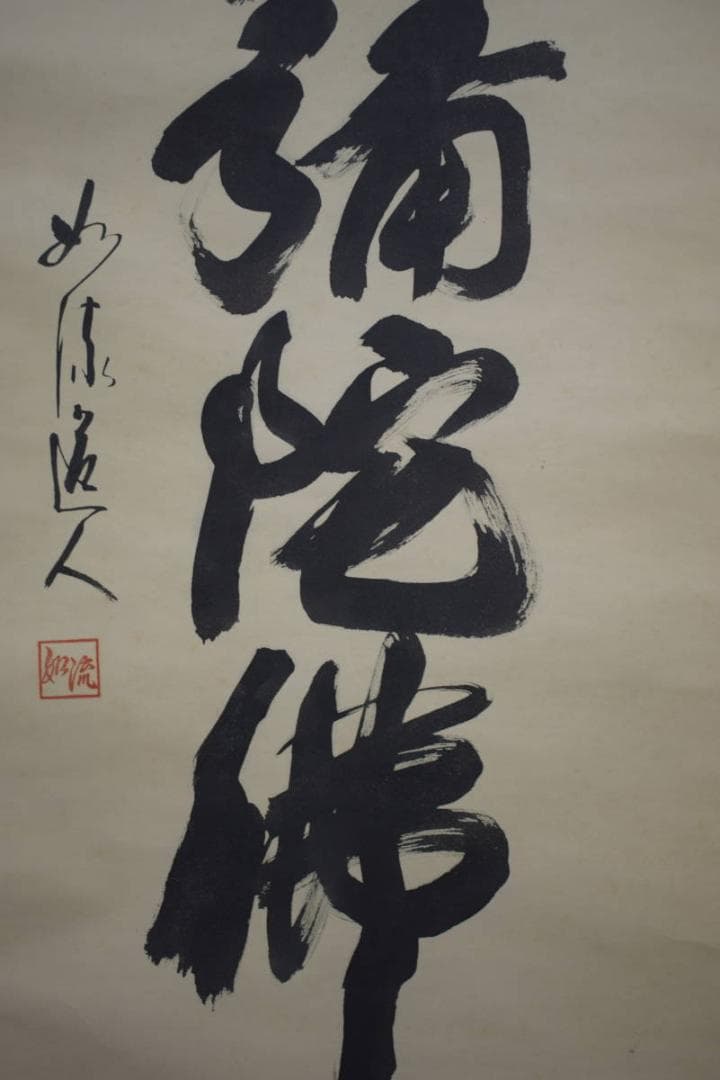 彌陀佛
如流道人
如流